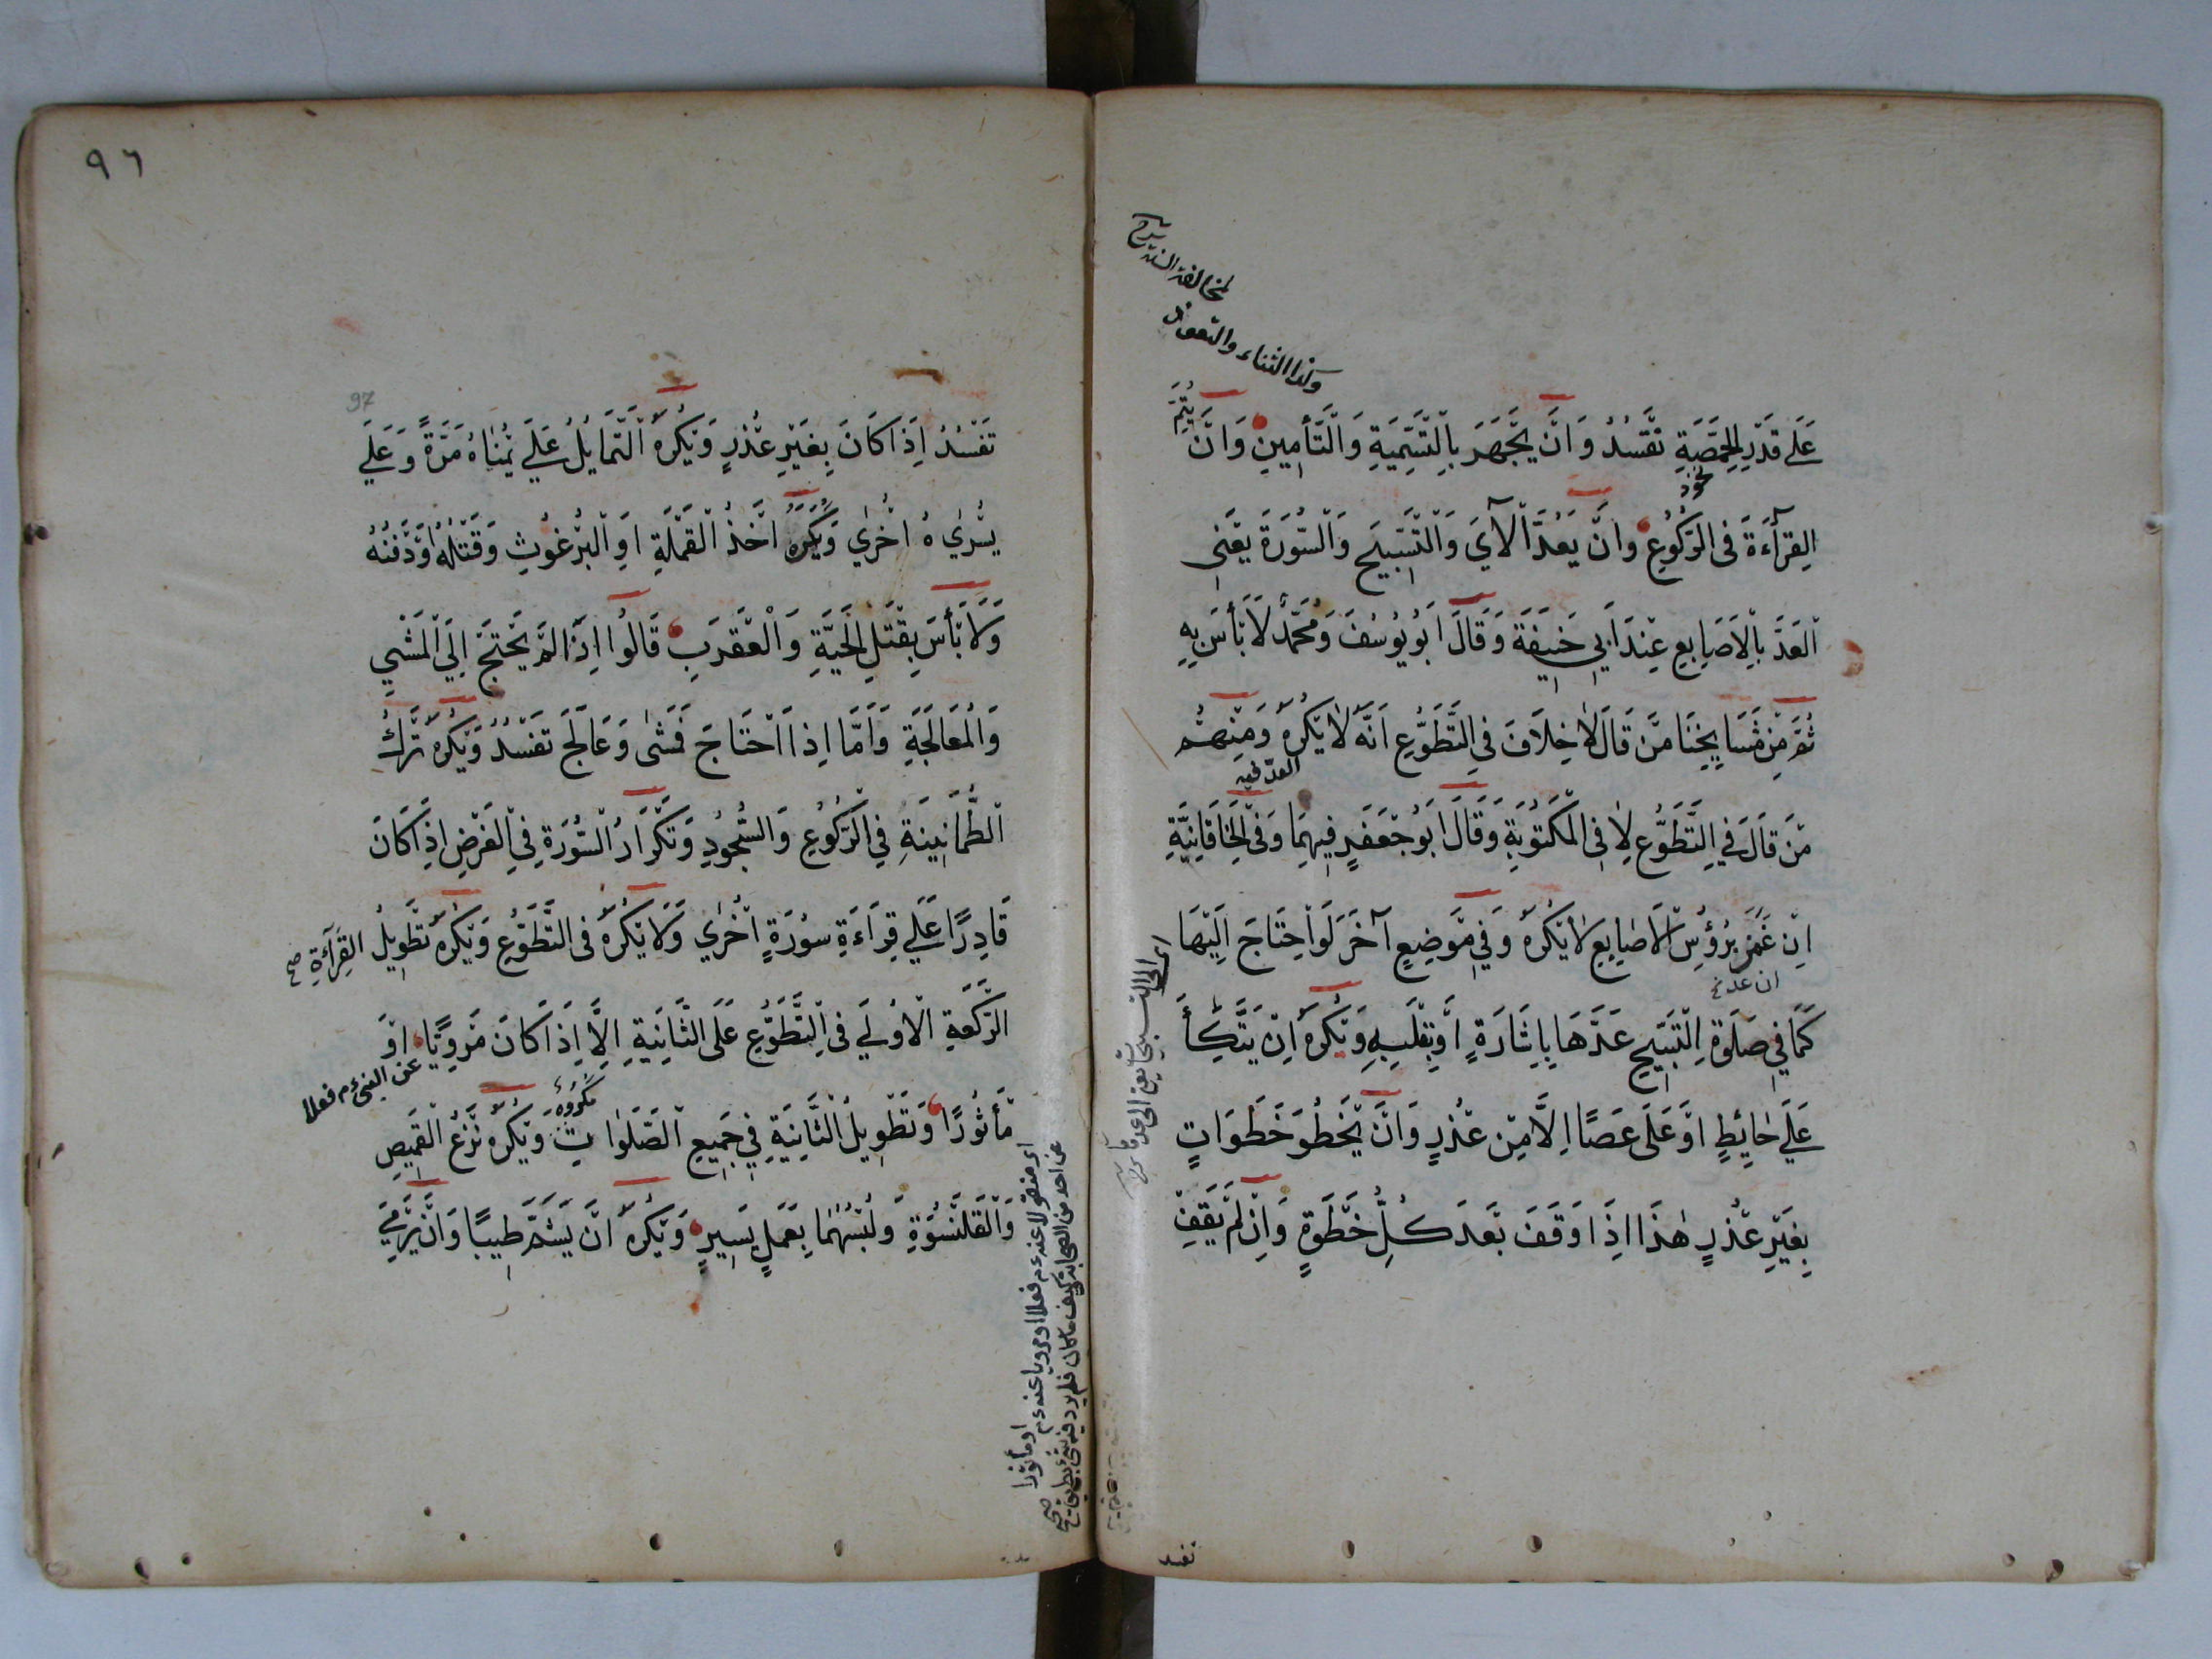 لمخالفة السنة شرح
وكذا الثناء والتعوذ
عَلَي قَدْرِ الْحِمَّصَةِ تَفْسُدُ وَاَنْ يَجْهَرَ بِالتَّسْمِيَةِ وَالتَّأمِينِ وَاَنْ يُتِمَّ
القِرَآءَةَ فِى الرُّكُوعِ وَاَنْ يَعُدَّ الْآيَ وَالتَّسْبِيحَ وَالسُّورَةَ يَعْنِى
نحوه
الْعَدَّ بِالْاَصَابِعِ عِنْدَ اَبِي حَنِيفَةَ وَقَالَ اَبُو يُوسُفَ وَمُحَمَّدٌ لَا بَأسَ بِهِ
ثُمَّ مِنْ مَشَايِخِنَا مَنْ قَالَ لَا خِلَافَ فِي التَّطَوُّعِ اَنَّهُ لَا يُكْرَهُ وَمِنْهُمْ
العدّ فيه
مَنْ قَالَ فِي التَّطَوُّعِ لَا فِى الْمَكْتُوبَةِ وَقَالَ اَبُو جَعْفَرٍ فِيهِمَا وَفِى الْخَاقَانِيَّةِ
اِنْ غَمَزَ بِرُؤُسِ الْاَصَابِعِ لَا يُكْرَهُ وَفِي مَوْضِعٍ آخَرَ لَوْ احْتَاجَ اِلَيْهَا
ان عدّ
كَمَا فِي صَلَوةِ التَّسْبِيحِ عَدَّهَا بِاِشَارَةٍ اَوْ بِقَلْبِهِ وَيُكْرَهُ اِنْ يَتَّكِأَ
عَلَي حَائِطٍ اَوْ عَلَى عَصًا اِلَّا مِنْ عُذْرٍ وَاَنْ يَخْطُوَ خَطَوَاتٍ
بِغَيْرِ عُذْرٍ هٰذَا اِذَا وَقَفَ بَعْدَ كُلِّ خَطْوَةٍ وَاِنْ لَمْ يَقِفْ
اى الى التسبيحات يعنى الى عدها
تفسد
٩٦
97
تَفْسُدُ اِذَا كَانَ بِغَيْرِ عُذْرٍ وَيُكْرَهُ التَّمَايُلُ عَلَي يُمْنَاهُ مَرَّةً وَعَلَي
يُسْرٰيهُ اُخْرٰي وَيُكْرَهُ اَخْذُ الْقَمْلَةِ اَوِ الْبُرْغُوثِ وَقَتْلُهُ اَوْدَفْنُهُ
وَلَا بَأسَ بِقَتْلِ الْحَيَّةِ وَالْعَقْرَبِ قَالُوا اِذَا لَمْ يَحْتَجْ اِلَي الْمَشْيِ
وَالْمُعَالَجَةِ وَاَمَّا اِذَا احْتَاجَ فَمَشٰى وَعَالَجَ تَفْسُدُ وَيُكْرَهُ تَرْكُ
الطُّمَانِينَةِ فِي الرُّكُوعِ وَالسُّجُودِ وَتَكْرَارُ السُّورَةِ فِي الْفَرْضِ اِذَا كَانَ
قَادِرًا عَلَي قِرَاءَةِ سُورَةٍ اُخْرٰي وَلَا يُكْرَهُ فِى التَّطَوُّعِ وَيُكْرَهُ تَطْوِيلُ القِرَآءَةِ صح
الرَّكْعَةِ الْاُولَي فِى التَّطَوُّعِ عَلَى الثَّانِيَةِ اِلَّا اِذَا كَانَ مَرْوِيًّا اَوْ
عن النبى ءم فعلا
مَأثُورًا وَتَطْوِيلُ الثَّانِيَةِ فِي جَمِيعِ الصَّلَوَاتِ وَيُكْرَهُ نَزْعُ الْقَمِيصِ
مكروه
وَالْقَلَنْسُوَةِ وَلُبْسُهُمَا بِعَمَلٍ يَسِيرٍ وَيُكْرَهُ اَنْ يَشَمَّ طِيبًا وَاَنْ يَرْمِيَ
اى منقولا عنه ءم فعلا او مرويا عنه ءم او مأثورا
عن احد من الصحابة كيف ما كان